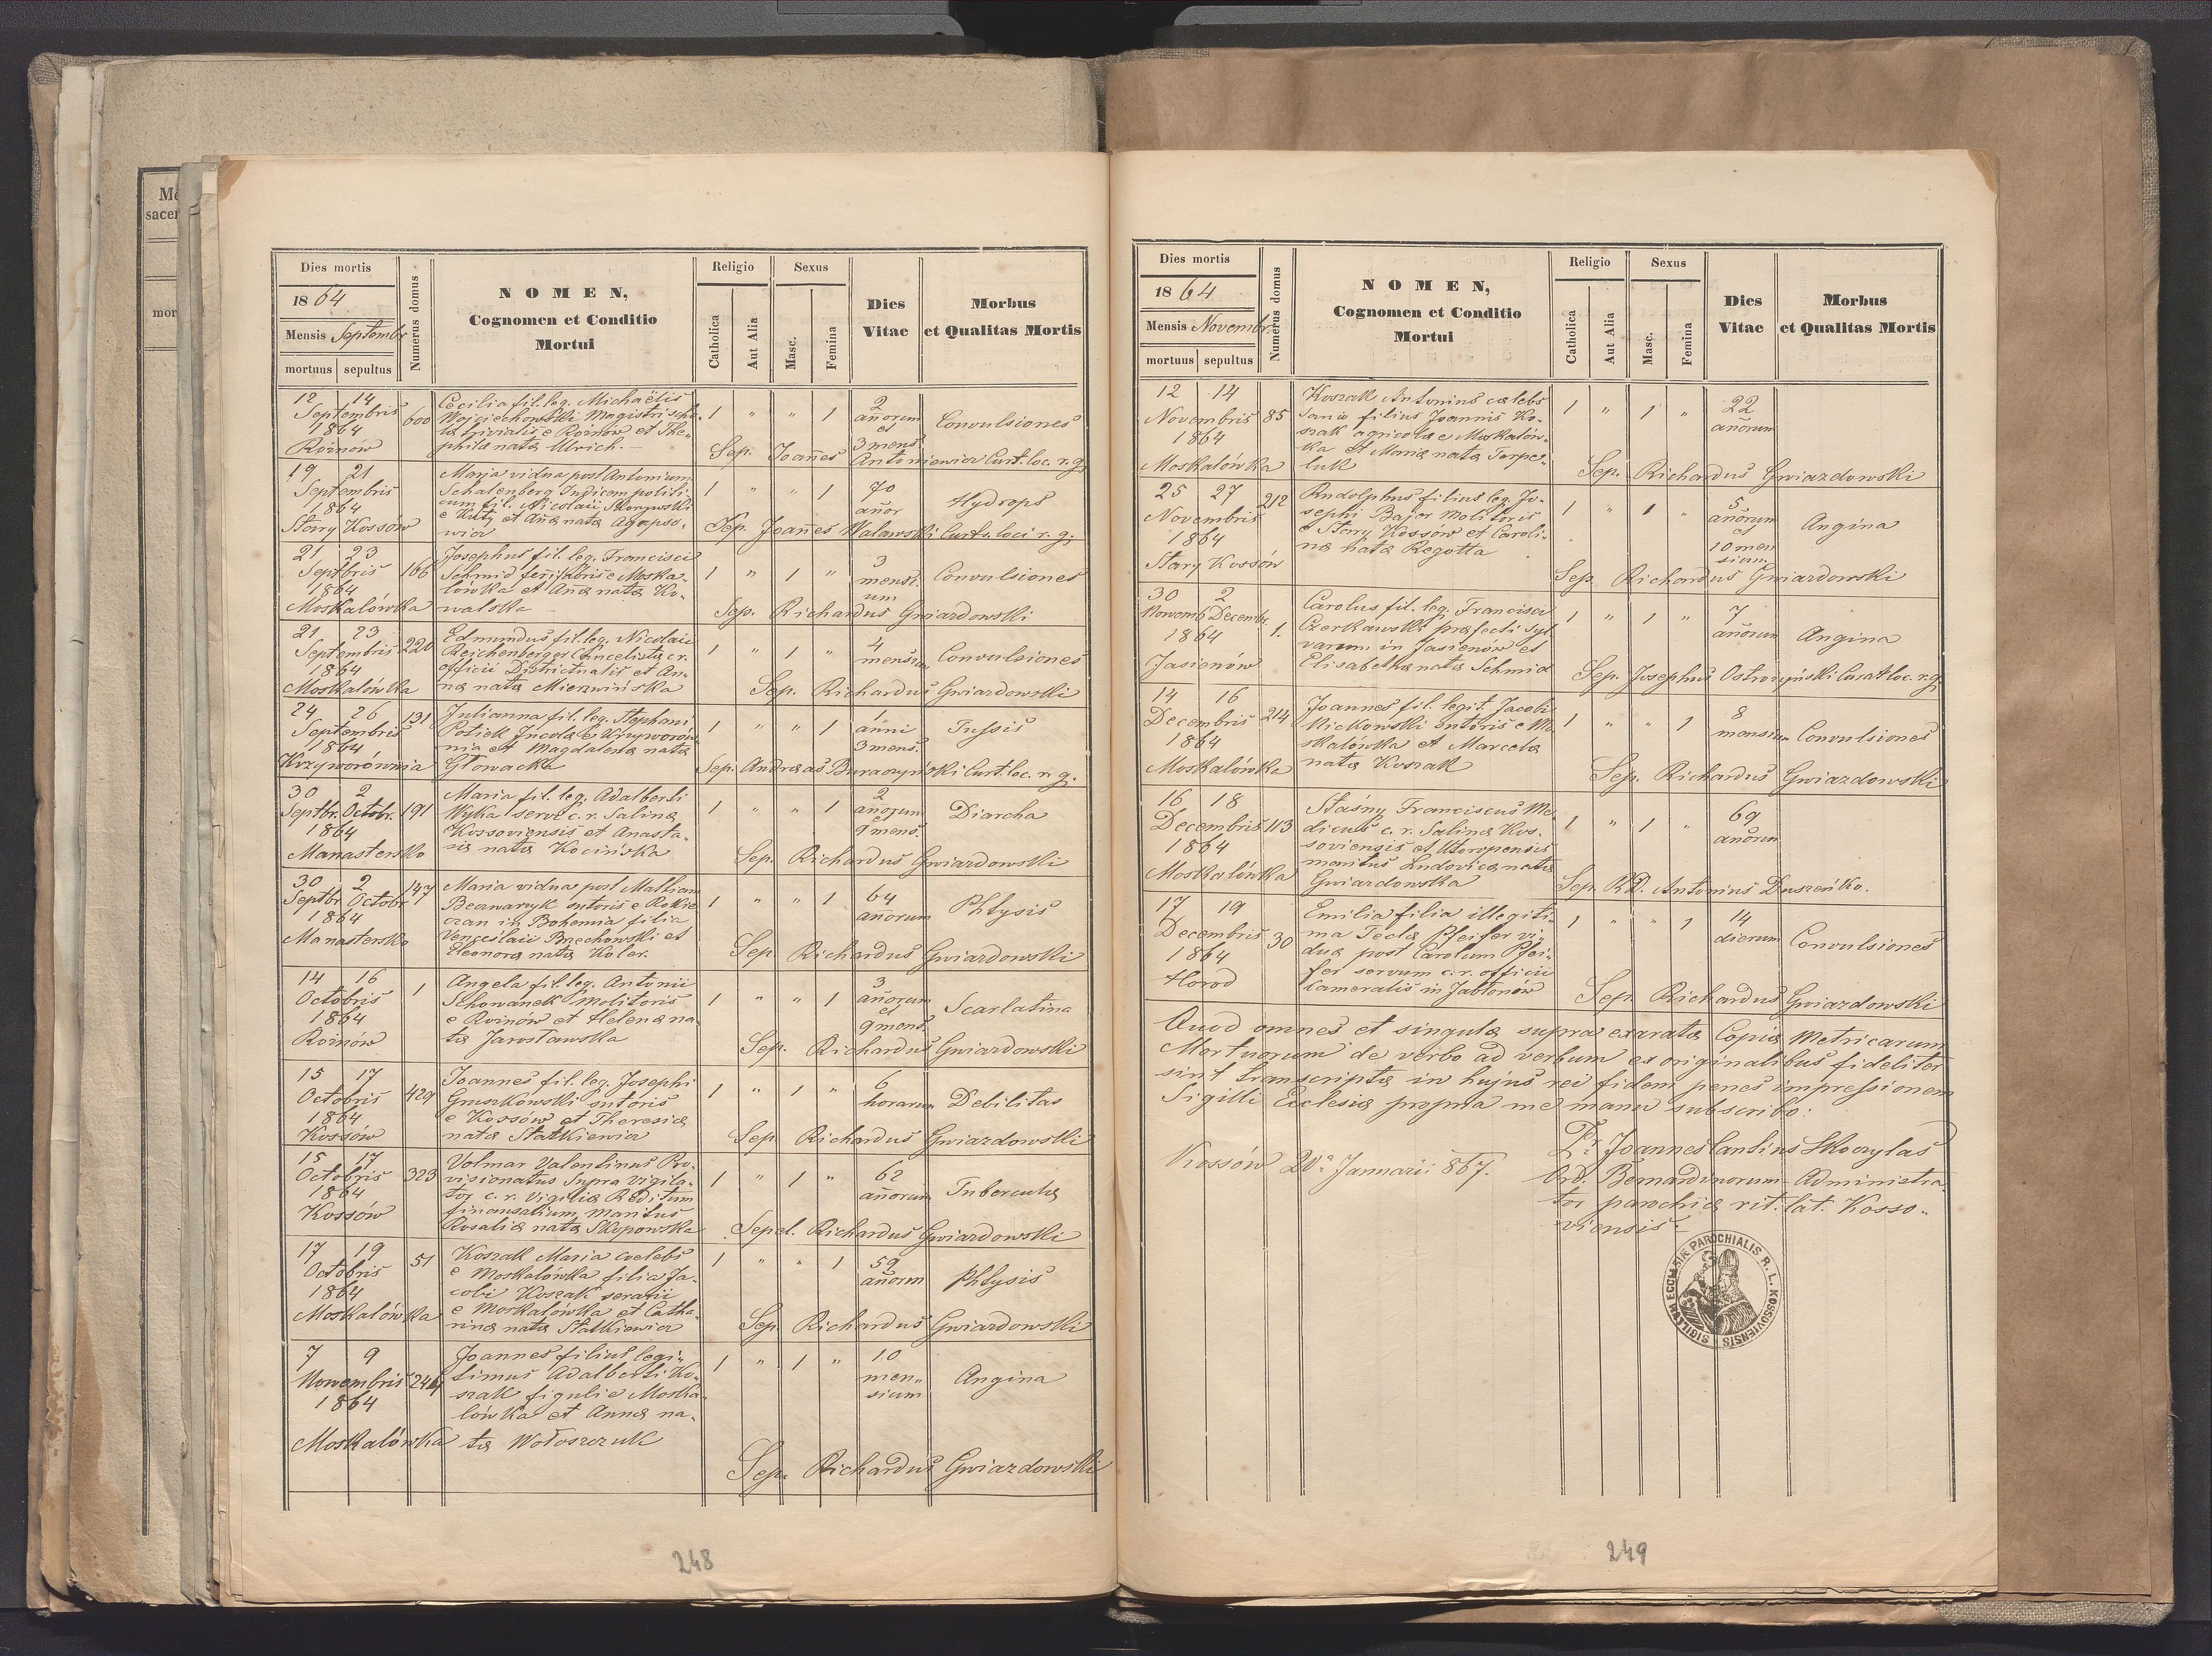 Dies mortis
1864
Mensis Septembr.
mortuus sepultus
Numerus domus
NOMEN,
Cognomen et Conditio
Mortui
Religio
Catholica
Aut Alia
Sexus
Masc.
Femina
Dies
Vitae
Morbus
et Qualitas Mortis
12 14
Septembris
1864
Rożnów
600
Cecilia fil. leg. Michaëlis
Wojciechowski Magistri scho-
læ trivialis e Rożnów et The-
phila nata Ulrich.
1 " " 1
2
añorum
et
3 mens.
Convulsiones
Sep. Joañes Antoniewicz Curt. loc. r. g.
19 21
Septembris
1864
Stary Kossów
Maria vidua post Antonium
Schatenberg Judicem politi-
cum fil. Nicolaii Skorywski
e Kuty et Aña nata Agopso-
wicz
1 " " 1
70
añor
Hydrops
Sep. Joañes Walawski Curt. loci r. g.
21 23
Septbris
1864
Moskalówka
166
Josephus fil. leg. Francisci
Schmid ferrifabris e Moska-
lówka et Aña nata Ko-
walska
1 " 1 "
3
mensi-
um
Convulsiones
Sep. Richardus Gwiazdowski
21 23
Septembris
1864
Moskalówka
220
Edmundus fil. leg. Nicolaii
Reichenberger Cancelista c. r.
officii Districtualis et An-
na nata Mierzwińska
1 " 1 "
4
mensium
Convulsiones
Sep. Richardus Gwiazdowski
24 26
Septembris
1864
Krzyworównia
131
Julianna fil. leg. Stephani
Poziek Incolæ e Krzyworów-
nia et Magdalena nata
Głowacka
1 " " 1
1
anni
3 mens.
Tussis
Sep. Andreas Buraczyński Curt. loc. r. g.
30 2
Septbr. Octobr.
1864
Manastersko
191
Maria fil. leg. Adalberti
Wyka servi c. r. Salinæ
Kossoviensis et Anasta-
sia nata Kocińska
1 " " 1
2
añorum
et
9 mens.
Diarcha
Sep. Richardus Gwiazdowski
30 2
Septbr Octobr
1864
Manastersko
147
Maria vidua post Mathiam
Bezwarzyk sutoris e Rokie-
czan in Bohemia filia
Venceslaii Brzechowski et
Eleonora nata Koler.
1 " " 1
64
añorum
Phtysis
Sep. Richardus Gwiazdowski
14 16
Octobris
1864
Rożnów
1
Angela fil. leg. Antonii
Schowanek Molitoris
e Rożnów et Helena na-
ta Jarosławska
1 " " 1
3
añorum
et
9 mens.
Scarlatina
Sep. Richardus Gwiazdowski
15 17
Octobris
1864
Kossów
429
Joannes fil. leg. Josephi
Gruszkowski sutoris
e Kossów et Theresia
nata Statkiewicz
1 " 1 "
6
horarum
Debilitas
Sep. Richardus Gwiazdowski
15 17
Octobris
1864
Kossów
323
Volmar Valentinus Pro-
visionatus Supra vigila-
tor c. r. Vigiliæ Redituum
finansalium, maritus
Rosalia nata Skupowska
1 " 1 "
62
añorum
Tubercula
Sepel. Richardus Gwiazdowski
17 19
Octobris
1864
Moskalówka
51
Koszak Maria coelebs
e Moskalówka filia Ja-
cobi Koszak serarii
e Moskalówka et Catha-
rina nata Statkiewicz
1 " " 1
59
añorum
Phtysis
Sep. Richardus Gwiazdowski
7 9
Novembris
1864
Moskalówka
244
Joannes filius legi-
timus Adalberti Ko-
szak figuli e Moska-
lówka et Anna na-
ta Wołoszczuk
1 " 1 "
10
men-
sium
Angina
Sep. Richardus Gwiazdowski
248
Dies mortis
1864
Mensis Novembr.
mortuus sepultus
Numerus domus
NOMEN,
Cognomen et Conditio
Mortui
Religio
Catholica
Aut Alia
Sexus
Masc.
Femina
Dies
Vitae
Morbus
et Qualitas Mortis
12 14
Novembris
1864
Moskalówka
85
Koszak Antonius cælebs
filius Joannis Ko-
szak agricolæ e Moskalów-
ka et Maria nata Terpe-
luk
1 " 1 "
22
añorum
Sep. Richardus Gwiazdowski
25 27
Novembris
1864
Stary Kossów
212
Rudolphus filius leg. Jo-
sephi Bajor Molitoris
e Stary Kossów et Caroli-
na nata Regotta
1 " 1 "
5
añorum
et
10 men
sium
Angina
Sep. Richardus Gwiazdowski
30 2
Novemb Decembr.
1864
Jasienów
1.
Carolus fil. leg. Francisci
Czerkawski præfecti syl-
varum in Jasienów et
Elisabetha nata Schmid
1 " 1 "
7
añorum
Angina
Sep. Josephus Ostrożyński Curat loc. r. g.
14 16
Decembris
1864
Moskalówka
214
Joannes fil. legit. Jacobi
Nickowski sutoris e Mo-
skalowka et Marcela
nata Koszak
1 " " 1
8
mensium
Convulsiones
Sep. Richardus Gwiazdowski
16 18
Decembris
1864
Moskalówka
113
Staśny Franciscus Me-
dicus c. r. Salina Kos-
soviensis et Utoropensis
maritus Ludovica nata
Gwiazdowska
1 " 1 "
69
añorum
Sep. RD. Antonius Duszeńko.
17 19
Decembris
1864
Horod
30
Emilia filia illegiti-
ma Tecla Pfeifer vi-
dua post Carolum Pfei-
fer servum c. r. officii
Cameralis in Jabłonów
1 " " 1
14
dierum
Convulsiones
Sep. Richardus Gwiazdowski
Quod omnes et singula supra exarata Copia Metricarum
Mortuorum de verbo ad verbum ex originalibus fideliter
sint transcripta in hujus rei fidem penes impressionem
Sigilli Ecclesia propria me manu subscribo:
Kossów 20a Januarii 867.
Fr. Joannes Cantius Skoczylas
Ord. Bernardinorum Administra-
tor parochiæ rit. lat. Kosso-
viensis.
SIGILLUM ECCLESIÆ PAROCHIALIS R. L. KOSSOVIENSIS
249
Me
sacer
mor